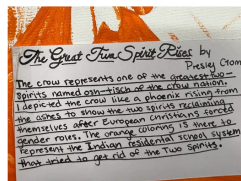 The Great Two Spirit Rises by
Presley Crom
The crow represents one of the greatest two-
Spirits named osh-tisch of the crow nation.
I depicted the crow like a phoenix rising from
the ashes to show the two spirits reclaiming
themselves after European Christians forced
gender roles. The orange coloring is there to
represent the Indian residential school system
that tried to get rid of the Two Spirits.